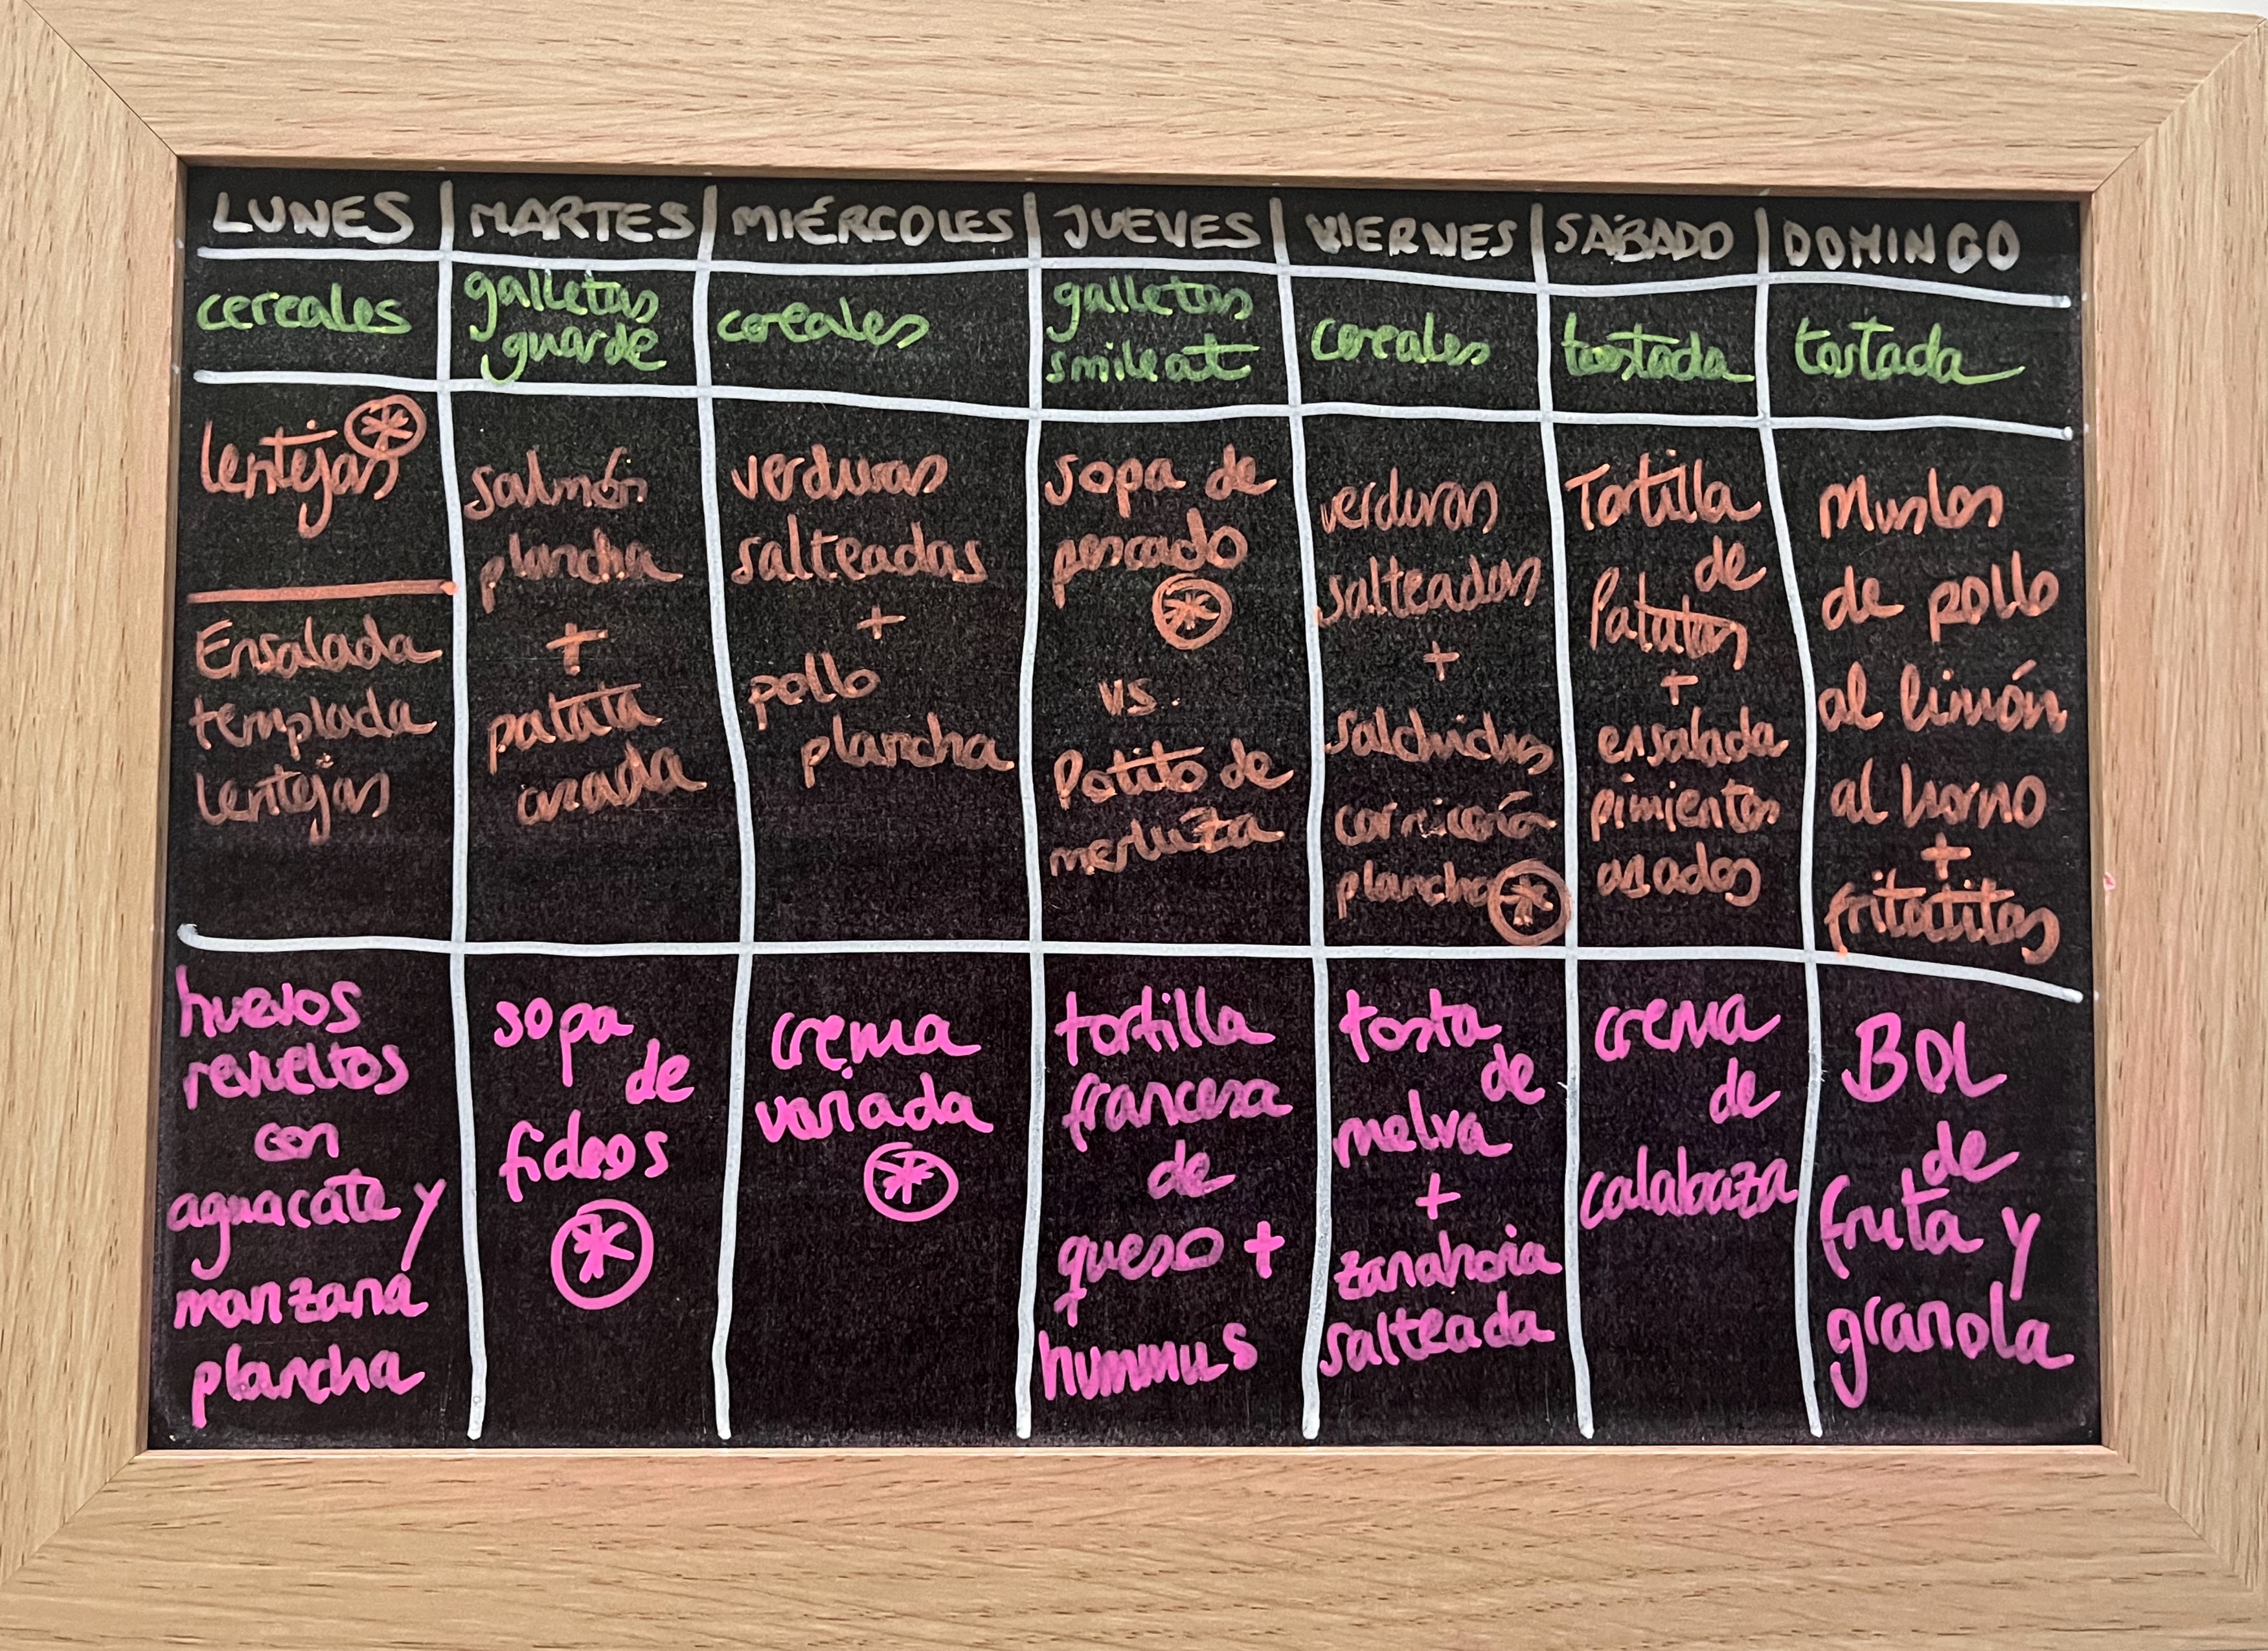 LUNES
MARTES
MIÉRCOLES
JUEVES
VIERNES
SÁBADO
DOMINGO
cereales
galletas
guarde
cereales
galletas
smileat
cereales
tostada
tostada
lentejas
Ensalada
templada
lentejas
salmón
plancha
+
patata
asada
verduras
salteadas
+
pollo
plancha
sopa de
pescado
vs.
Potito de
merluza
verduras
salteadas
+
salchichas
plancha
Tortilla
de
Patatas
+
ensalada
pimientos
asados
Muslos
de pollo
al limón
al horno
+
fritatitas
huevos
revueltos
con
aguacate y
manzana
plancha
sopa
de
fideos
crema
variada
tortilla
francesa
de
queso +
hummus
tosta
de
melva
+
zanahoria
salteada
crema
de
calabaza
BOL
de
fruta y
granola